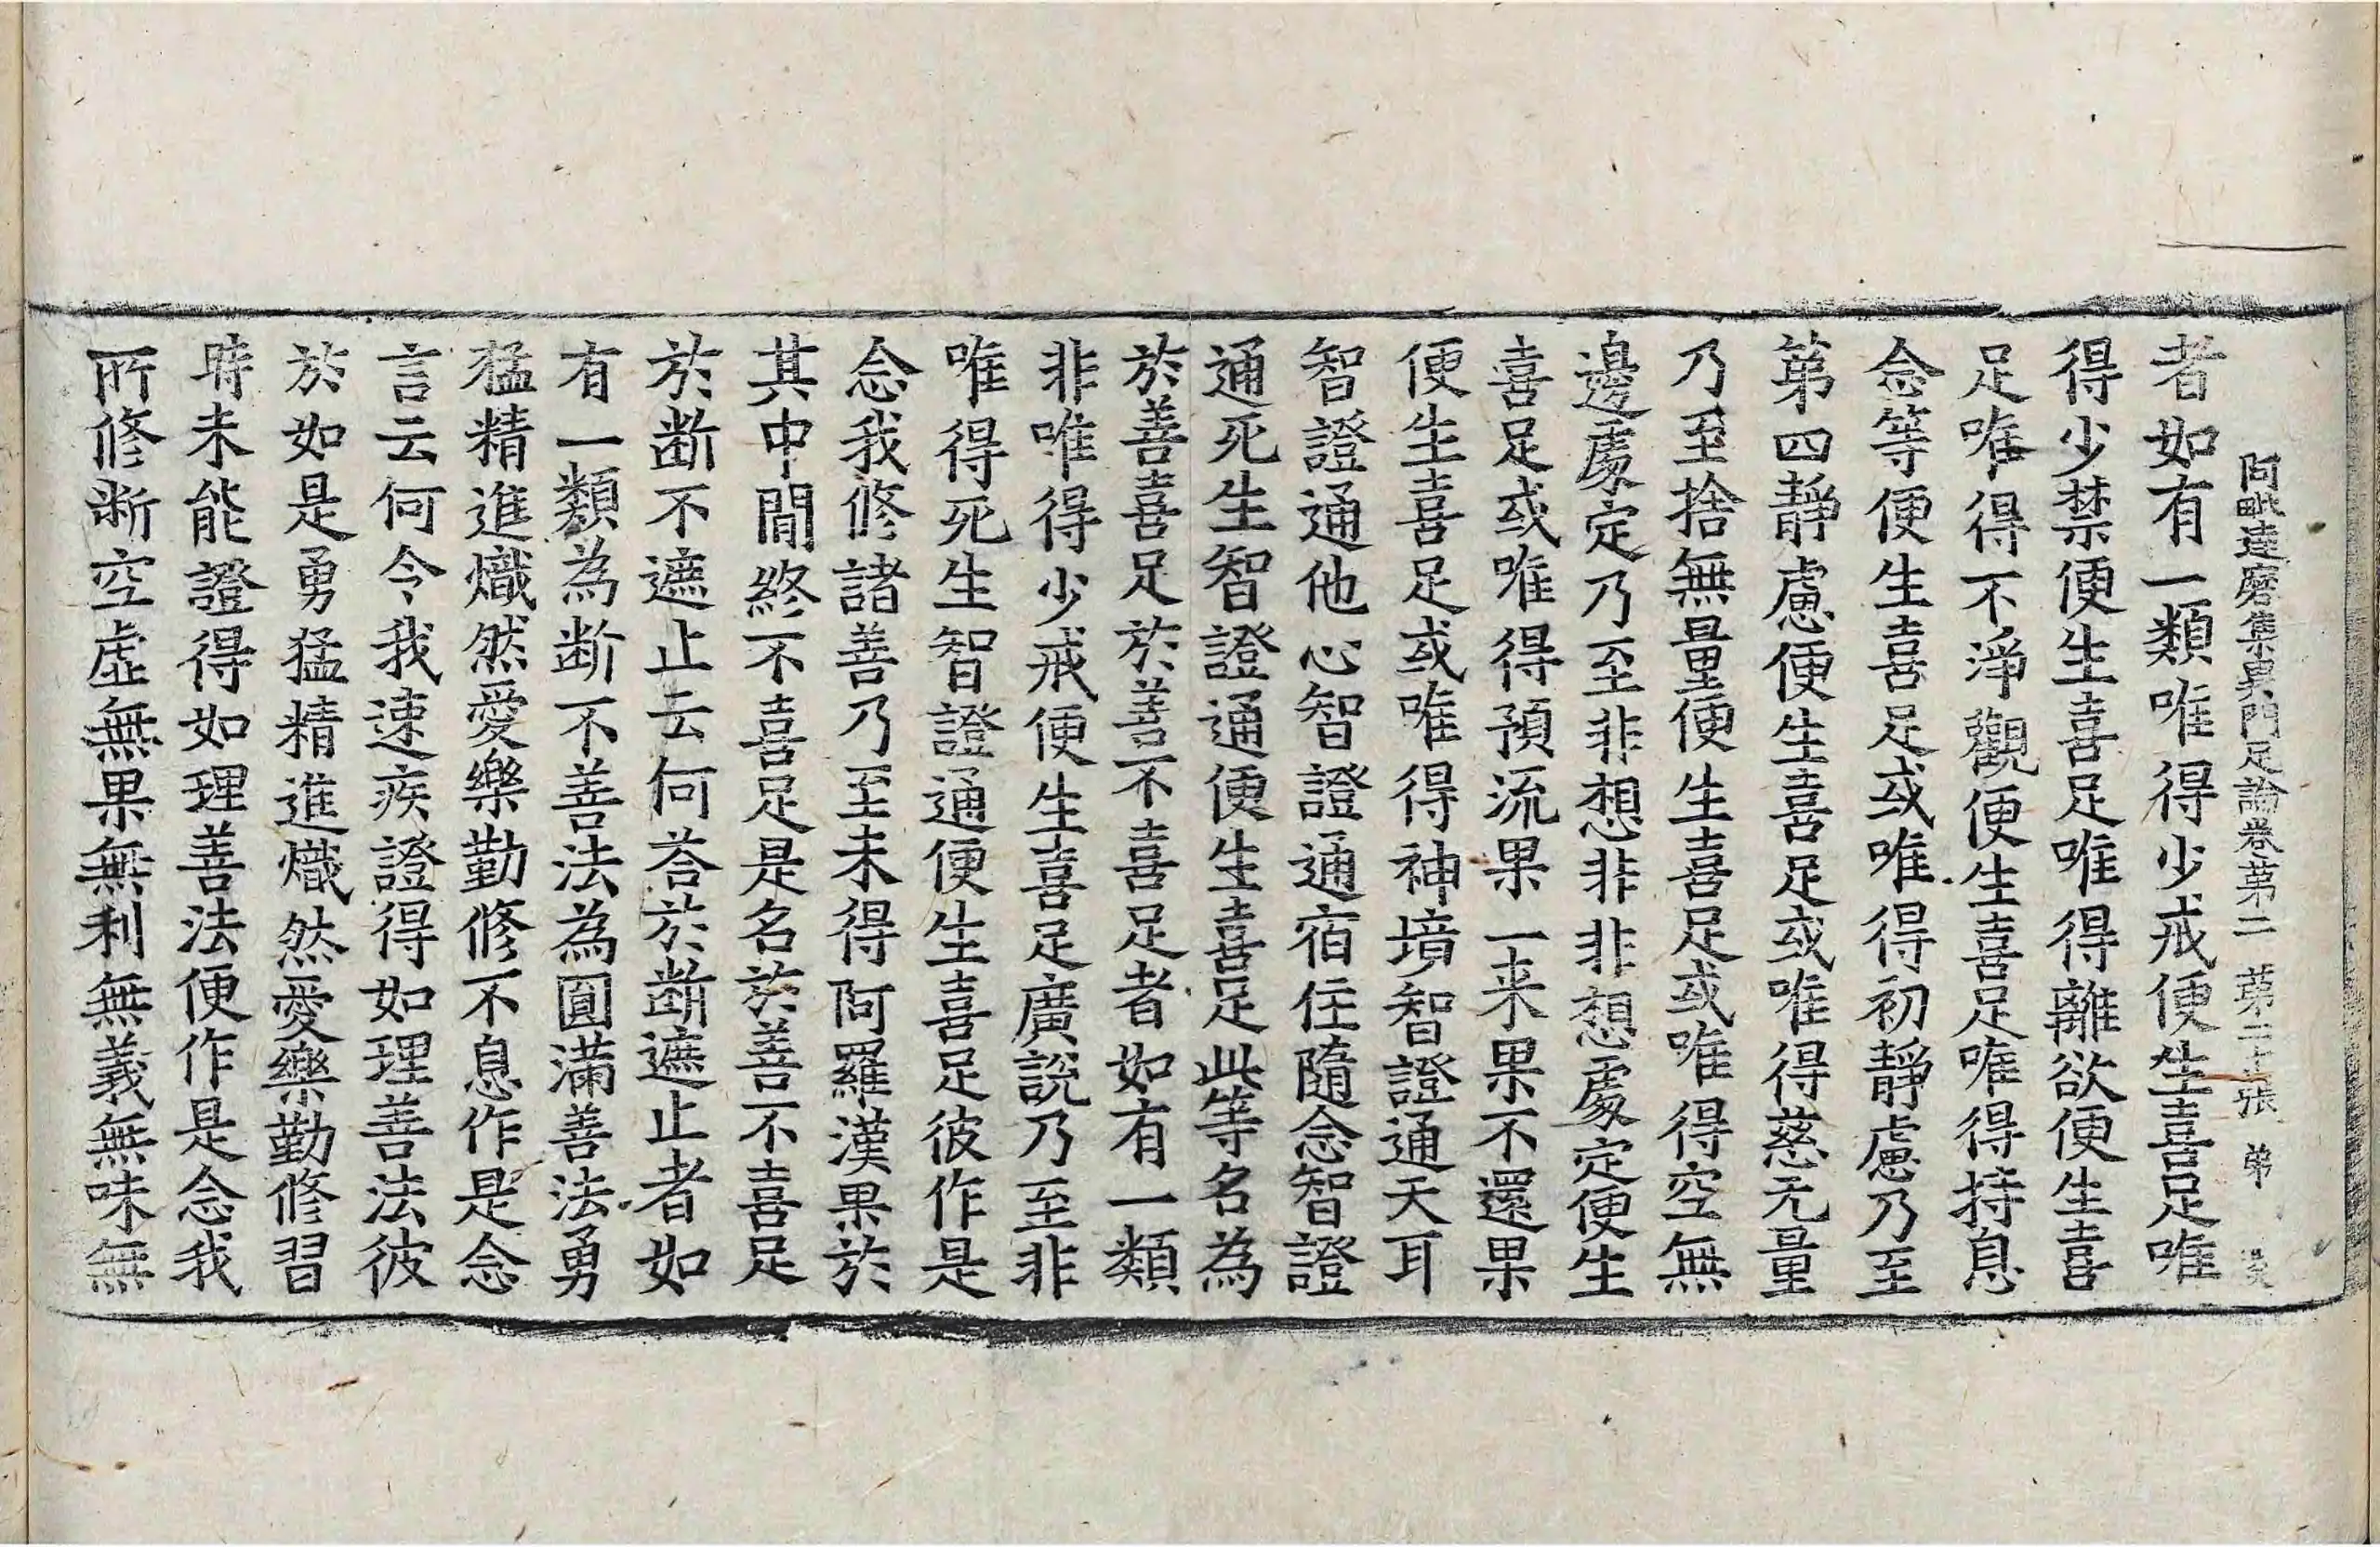 阿毗達磨集異門足論卷第二 第二十張 弟
者如有一類唯得少戒便生喜足唯
得少禁便生喜足唯得離欲便生喜
足唯得不淨觀便生喜足唯得持息
念等便生喜足或唯得初靜慮乃至
第四靜慮便生喜足或唯得慈无量
乃至捨無量便生喜足或唯得空無
邊處定乃至非想非非想處定便生
喜足或唯得預流果一来果不還果
便生喜足或唯得神境智證通天耳
智證通他心智證通宿住隨念智證
通死生智證通便生喜足此等名為
於善喜足於善不喜足者如有一類
非唯得少戒便生喜足廣說乃至非
唯得死生智證通便生喜足彼作是
念我修諸善乃至未得阿羅漢果於
其中間終不喜足是名於善不喜足
於断不遮止云何荅於断遮止者如
有一類為断不善法為圓滿善法勇
猛精進熾然愛樂勤修不息作是念
言云何令我速疾證得如理善法彼
於如是勇猛精進熾然愛樂勤修習
時未能證得如理善法便作是念我
所修断空虛無果無利無義無味無